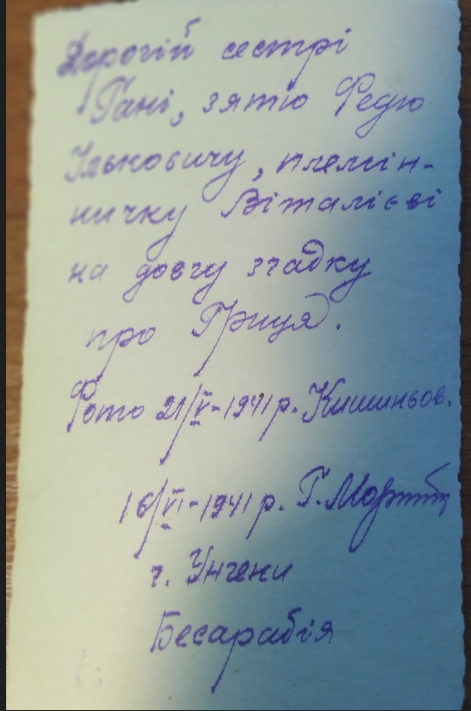 Дорогій сестрі
Гані, зятю Федю
Ільковичу, племін-
ничку Віталієві
на довгу згадку
про Гриця.
Фото 21/V-1941 р. Кишиньов.
16/VI-1941 р. Г.
г. Унгени
Бесарабія